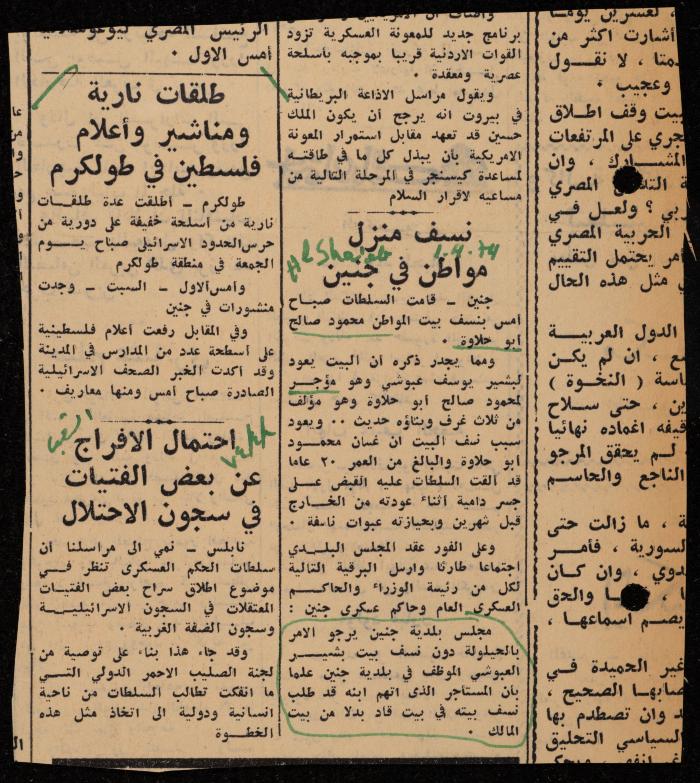 الرئيس المصري
أمس الاول .
طلقات نارية
ومناشير وأعلام
فلسطين في طولكرم
طولكرم ــ أطلقت عدة طلقـــات
نارية من أسلحة خفيفة على دورية من
حرس الحدود الاسرائيلي صباح يـــوم
الجمعة في منطقة طولكرم
وأمس الاول ــ السبت ــ وجدت
منشورات في جنين
وفي المقابل رفعت أعلام فلسطينية
على أسطحة عدد من المدارس في المدينة
وقد أكدت الخبر الصحف الاسرائيلية
الصادرة صباح أمس ومنها معاريف .
احتمال الافراج
عن بعض الفتيات
في سجون الاحتلال
نابلس ــ نمي الى مراسلنا أن
سلطات الحكم العسكرى تنظر فـــي
موضوع اطلاق سراح بعض الفتيات
المعتقلات في السجون الاسرائيليـــة
وسجون الضفة الغربية .
وقد جاء هذا بناء على توصية من
لجنة الصليب الاحمر الدولي التـــي
ما انفكت تطالب السلطات من ناحية
انسانية ودولية الى اتخاذ مثل هذه
الخطـــوة
برنامج جديد للمعونة العسكرية تزود
القوات الاردنية قريبا بموجبه بأسلحة
عصرية ومعقدة .
ويقول مراسل الاذاعة البريطانية
في بيروت انه يرجح أن يكون الملك
حسين قد تعهد مقابل استمرار المعونة
الامريكية بأن يبذل كل ما في طاقتـه
لمساعدة كيسنجر في المرحلة التالية من
مساعيه لاقرار السلام
نسف منزل
مواطن في جنين
Al Shaab
1.4.74
جنين ــ قامت السلطات صبـاح
أمس بنسف بيت المواطن محمود صالح
أبو حلاوة .
ومما يجدر ذكره أن البيت يعود
لبشير يوسف عبوشي وهو مؤجـــر
لمحمود صالح أبو حلاوة وهو مؤلف
من ثلاث غرف وبناؤه حديث .. ويعود
سبب نسف البيت ان غسان محمـــود
أبو حلاوة والبالغ من العمر ٢٠ عاما
قد ألقت السلطات عليه القبض عـــلى
جسر دامية أثناء عودته من الخـــارج
قبل شهرين وبحيازته عبوات ناسفة .
وعلى الفور عقد المجلس البلـــدي
اجتماعا طارئا وارسل البرقية التالية
لكل من رئيسة الوزراء والحاكـــم
العسكري العام وحاكم عسكري جنين :
مجلس بلدية جنين يرجو الامر
بالحيلولة دون نسف بيت بشيـــر
العبوشي الموظف في بلدية جنين علما
بأن المستأجر الذى اتهم ابنه قد طلب
نسف بيته في بيت قاد بدلا من بيت
المالك .
لعشرين يومـــا
أشارت اكثر من
لا نقـــول
وعجيب .
بيت وقف اطـلاق
جري على المرتفعات
وان
المصري
ربي ؟ ولعل فـــي
الحربية المصري
أمر يحتمل التقييم
ي مثل هذه الحال
الدول العربيـــة
ع ، ان لم يكـن
اسة ( النخوة )
ين ، حتى سـلاح
اغماده نهائيا
لم يحقق المرجو
الناجع والحاسم
ة ، ما زالت حتى
لسورية ، فأمـــر
وان كـــان
والحق
يصـم اسماعها ،
غير الحميدة فـــي
الصحيح ،
وان تصطدم بها
السياسي التحليق